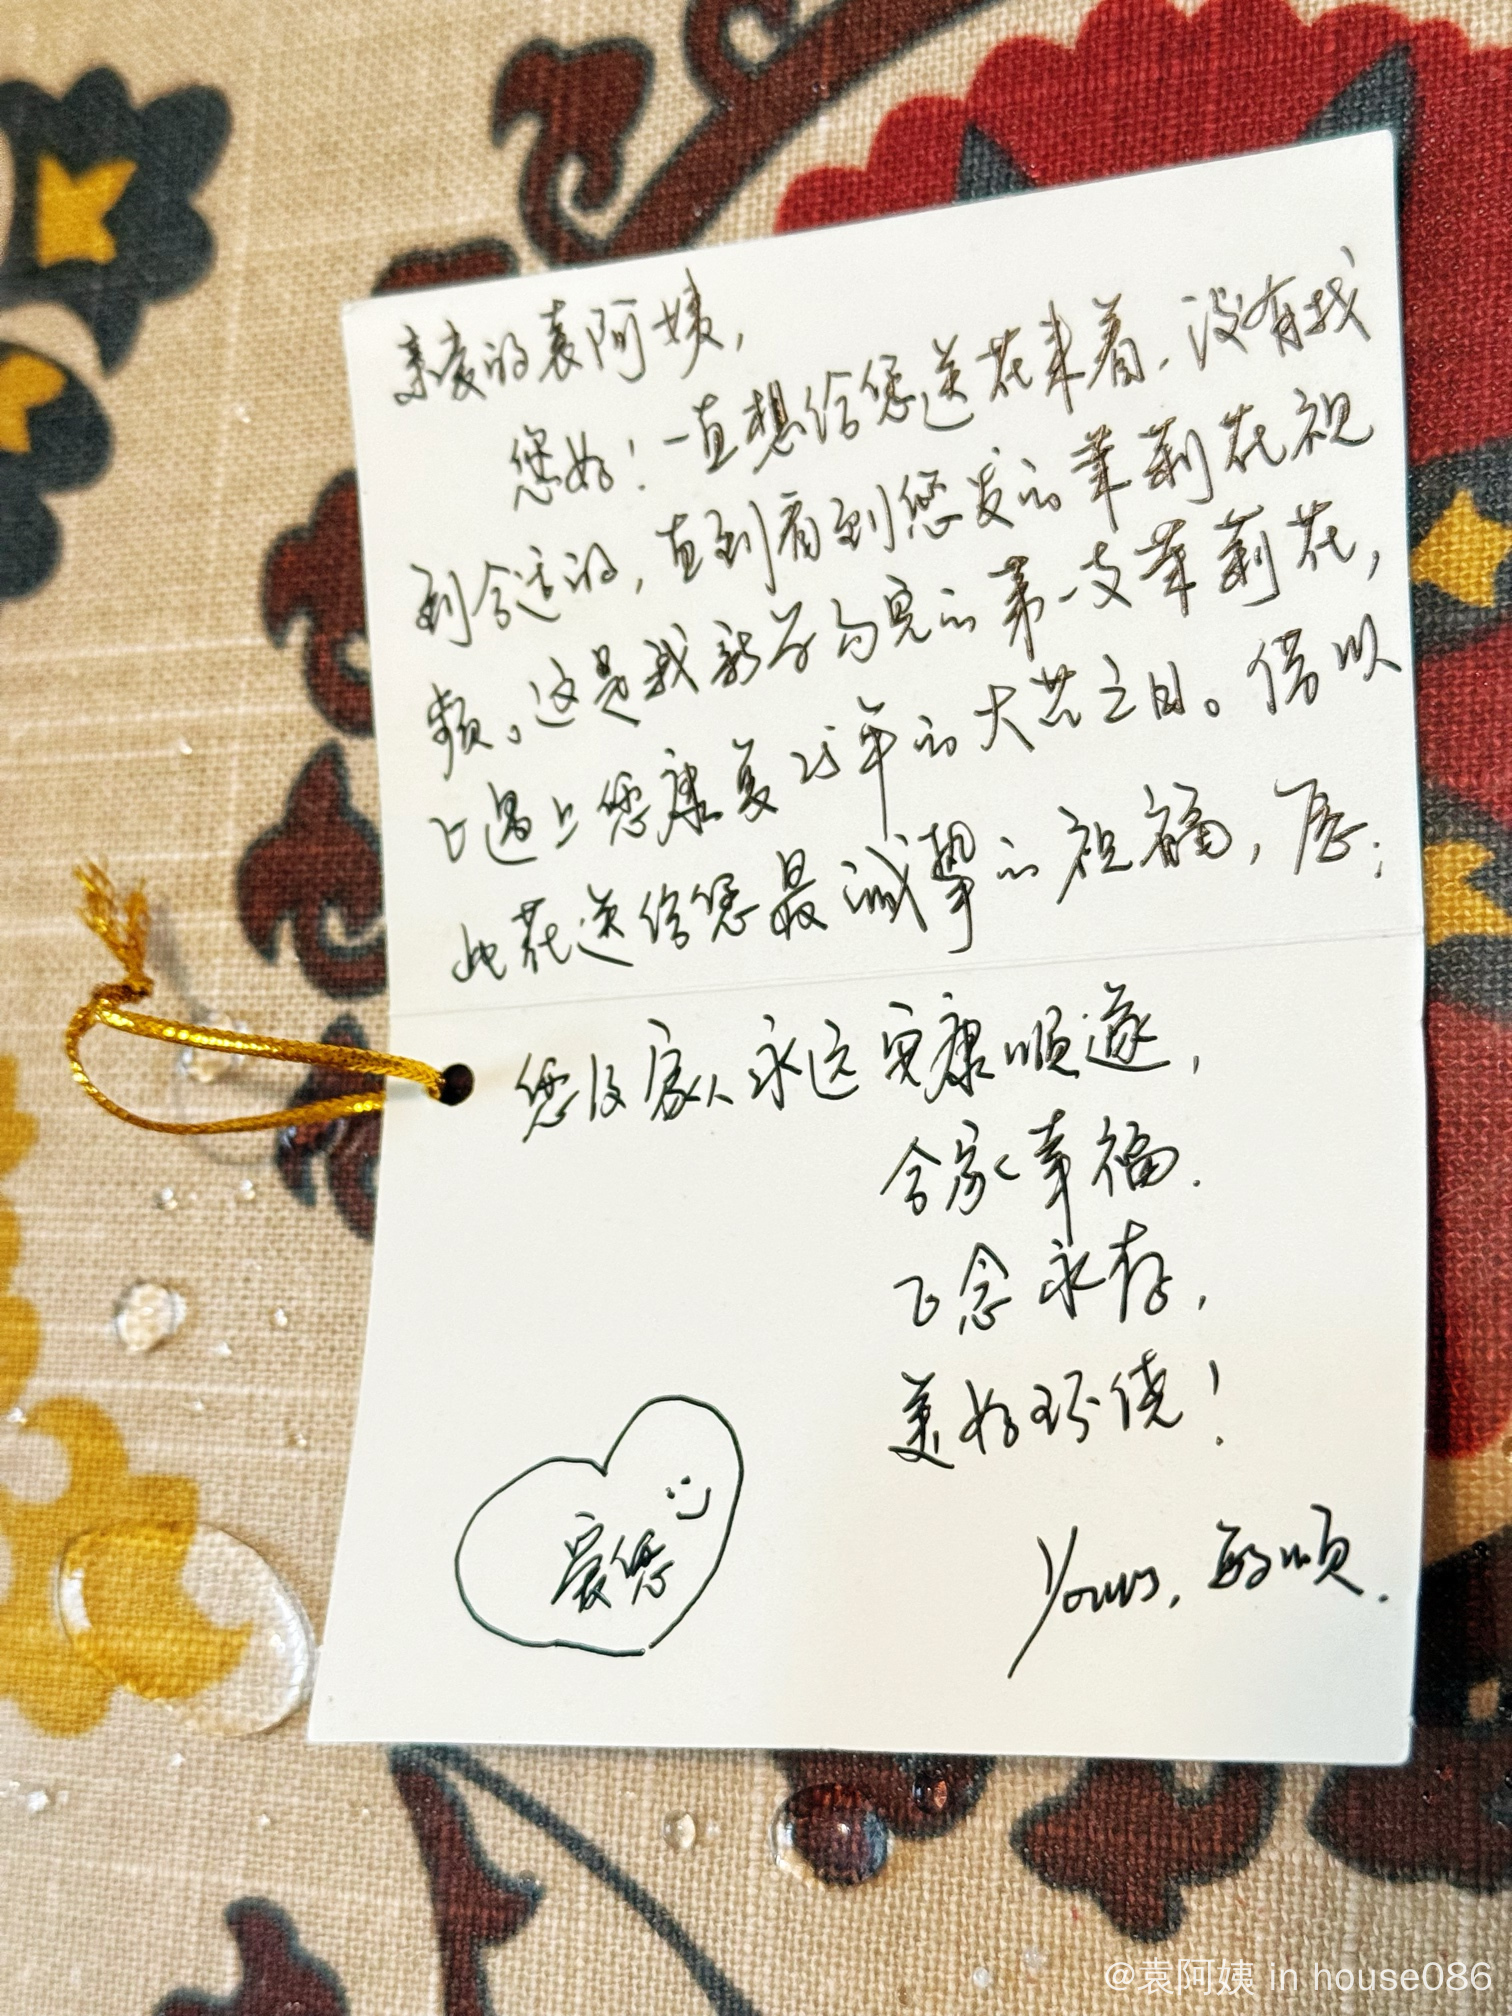 亲爱的袁阿姨,
您好!一直想给您送花来着,没有找
到合适的,直到看到您发的茉莉花视
频。这是我新学勾完的第一支茉莉花,
遇上您康复25年的大喜之日。借以
此花送给您最诚挚的祝福,愿:
您及家人永远安康顺遂,
合家幸福.
念永存,
美好环绕!
爱您
Yours, 顺.
@袁阿姨 in house086